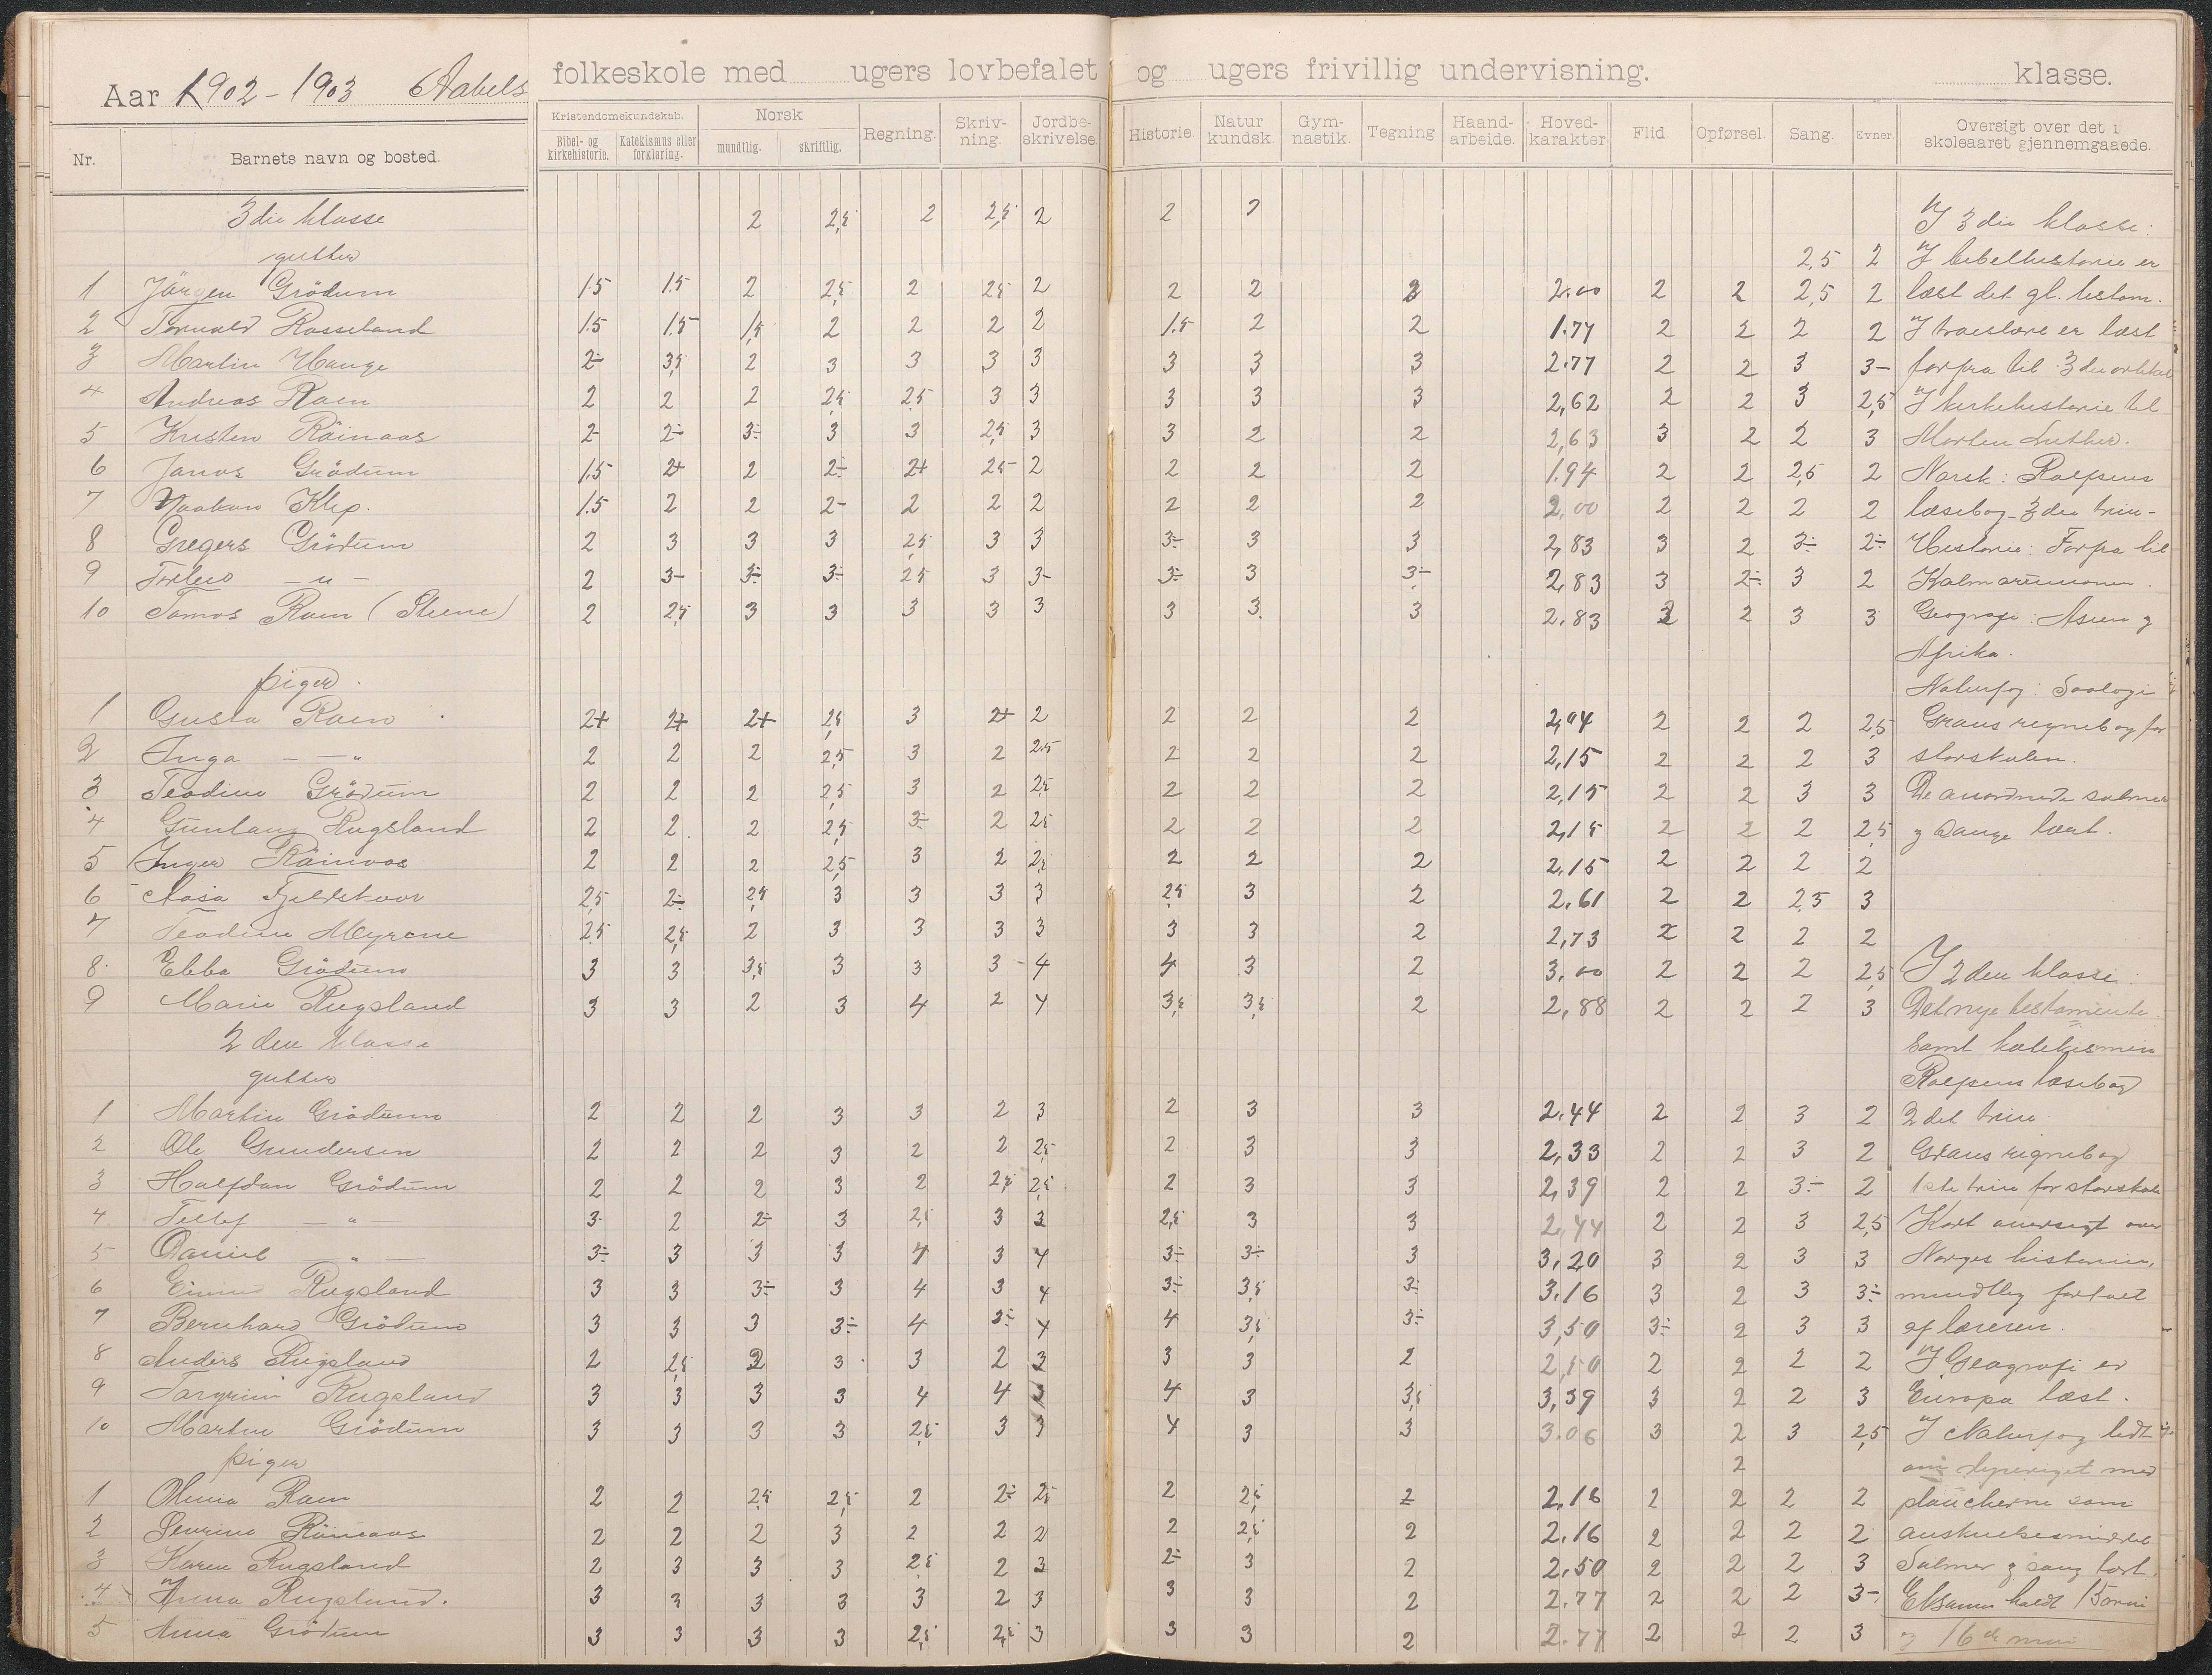 Aar 1902-1903 Aabels folkeskole med ugers lovbefalet og ugers frivillig undervisning. klasse.
Nr. Barnets navn og bosted. Kristendomskundskab. Bibel- og kirkehistorie. Katekismus eller forklaring. Norsk mundtlig. skriftlig. Regning. Skriv-ning. Jordbe-skrivelse. Historie. Natur kundsk. Gym-nastik. Tegning Haand-arbeide. Hoved-karakter Flid. Opførsel. Sang. Evner. Oversigt over det i skoleaaret gjennemgaaede.
3die klasse 2 2,5 2 2,5 2 2 2 I 3die klasse:
gutter 2,5 2 I bibelhistorie er
1 Jörgen Grödum 1.5 1.5 2 2,5 2 2,5 2 2 2 2 2.00 2 2 2,5 2 læst det gl. testam.
2 Torvald Rosseland 1.5 1.5 1,5 2 2 2 2 1.5 2 2 1.77 2 2 2 2 I troeslære er læst
3 Martin Hauge 2÷ 3,5 2 3 3 3 3 3 3 3 2.77 2 2 3 3- forfra til 3die artikel
4 Andreas Raen 2 2 2 2,5 2,5 3 3 3 3 3 2,62 2 2 3 2,5 I kirkehistorie til
5 Kristen Röinaas 2- 2÷ 3÷ 3 3 2,5 3 3 2 2 2,63 3 2 2 3 Morten Luther.
6 Janos Grödum 1.5 2+ 2 2÷ 2+ 2,5 2 2 2 2 1.94 2 2 2,5 2 Norsk: Rolfsens
7 Haakon Klep. 1.5 2 2 2- 2 2 2 2 2 2 2,00 2 2 2 2 læsebog 3die trin-
8 Gregers Grödum 2 3 3 3 2,5 3 3 3÷ 3 3 2,83 3 2 3÷ 2÷ Historie: Forfra til
9 -"- 2 3- 3÷ 3÷ 2,5 3 3- 3÷ 3 3÷ 2,83 3 2÷ 3 2 Kalmarunionen.
10 Tomas Raen (Stene) 2 2,5 3 3 3 3 3 3 3. 3 2.83 2 3 3 Geografi: Asien og
Afrika.
piger. Naturfag: Soologi
1 Gusta Raen 2+ 2+ 2+ 2,5 3 2+ 2 2 2 2 2,04 2 2 2 2,5 Grans regnebog for
2 Inga -"- 2 2 2 2,5 3 2 2.5 2 2 2 2,15 2 2 2 3 storskolen.
3 Teodine Grödum 2 2 2 2,5 3 2 2,5 2 2 2 2,15 2 2 3 3 De anordnede salmer
4 Gunlaug Rugsland 2 2. 2 2,5 3÷ 2 2,5 2 2 2 2,15 2 2 2 2,5 og sange lært.
5 Inger Röinaas 2 2 2 2,5 3 2 2,5 2 2 2 2.15 2 2 2 2
6 Aasa Fjeldskaar 2,5 2÷ 2,5 3 3 3 3 2,5 3 2 2.61 2 2 2,5 3
7 Teodine Myrene 2,5 2,5 2 3 3 3 3 3 3 2 2,73 2 2 2 2
8 Ebba Grödum 3 3 3,5 3 3 3 4 4 3 2 3.00 2 2 2 2,5 I 2den klasse:
9 Marie Rugsland 3 3 2 3 4 2 4 3,5 3,5 2 2,88 2 2 2 3 Det nye testamente
2den klasse samt katekismen
gutter Rolfsens læsebog
1 Martin Grödum 2 2 2 3 3 2 3 2 3 3 2.44 2 2 3 2 2det trin.
2 Ole Gundersen 2 2 2 3 2 2 2,5 2 3 3 2,33 2 2 3 2 Grans regnebog
3 Halfdan Grödum 2 2 2 3 2 2,5 2,5 2 3 3 2,39 2 2 3÷ 2 1ste trin for storskole
4 Tellef -"- 3 2 2÷ 3 2,5 3 3 2,5 3 3 2,44 2 2 3 2,5 Kort oversigt over
5 Daniel -"- 3÷ 3 3 3 4 3 4 3÷ 3÷ 3 3,20 3 2 3 3 Norges historie,
6 Rugsland 3 3 3÷ 3 4 3 4 3÷ 3,5 3÷ 3.16 3 2 3 3÷ mundtlig fortalt
7 Bernhard Grödum 3 3 3 3÷ 4 3÷ 4 4 3,5 3÷ 3,50 3÷ 2 3 3 af læreren.
8 Anders Rugsland 2 2,5 2 3 3 2 3 3 3 2 2,50 2 2 2 2 I Geografi er
9 Torgrim Rugsland 3 3 3 3 4 4 3 4 3 3,5 3,39 3 2 2 3 Europa læst.
10 Martin Grödum 3 3 3 3 2,5 3 3 4 3 3 3.06 3 2 3 2,5 I Naturfag lidt
piger 2 med
1 Olivia Raen 2 2 2,5 2,5 2 2÷ 2,5 2 2,5 2 2.16 2 2 2 2 plancherne som
2 Severine Röinaas 2 2 2 3 2 2 2 2 2,5 2 2.16 2 2 2 2 anskuelsesmiddel
3 Karen Rugsland 2 3 3 3 2,5 2 3 2÷ 3 2 2.50 2 2 2 3 Salmer og sang lært.
4 Anna Rugsland. 3 3 3 3 3 2 3 3 3 2 2.77 2 2 2 3- Eksamen holdt 15
5 Anna Grödum 3 3 3 3 2,5 2,5 3 3 3 2 2.77 2 2 2 3 og 16de